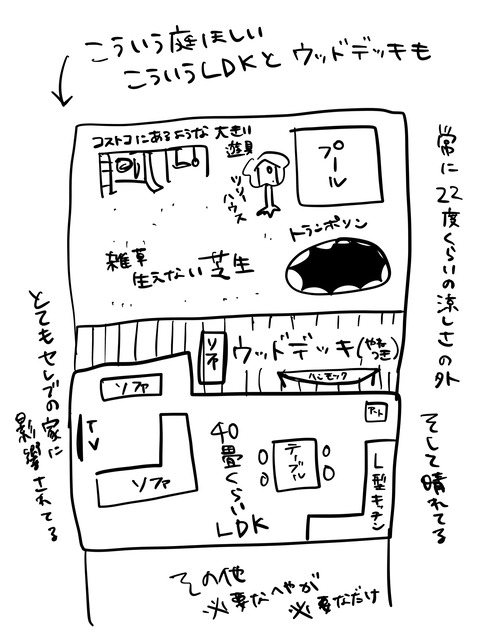 こういう庭ほしい
こういうLDKと ウッドデッキも
コストコにあるような 大きい
遊具
プール
ツリー
ハウス
トランポリン
雑草
生えない芝生
常に22度くらいの涼しさの外
そして晴れてる
ソファ
ウッドデッキ(やねつき)
ハンモック
とてもセレブの家に
影響されてる
ソファ
TV
ソファ
40畳くらい
LDK
テーブル
アート
L型キッチン
その他
※要なへやが
※要なだけ